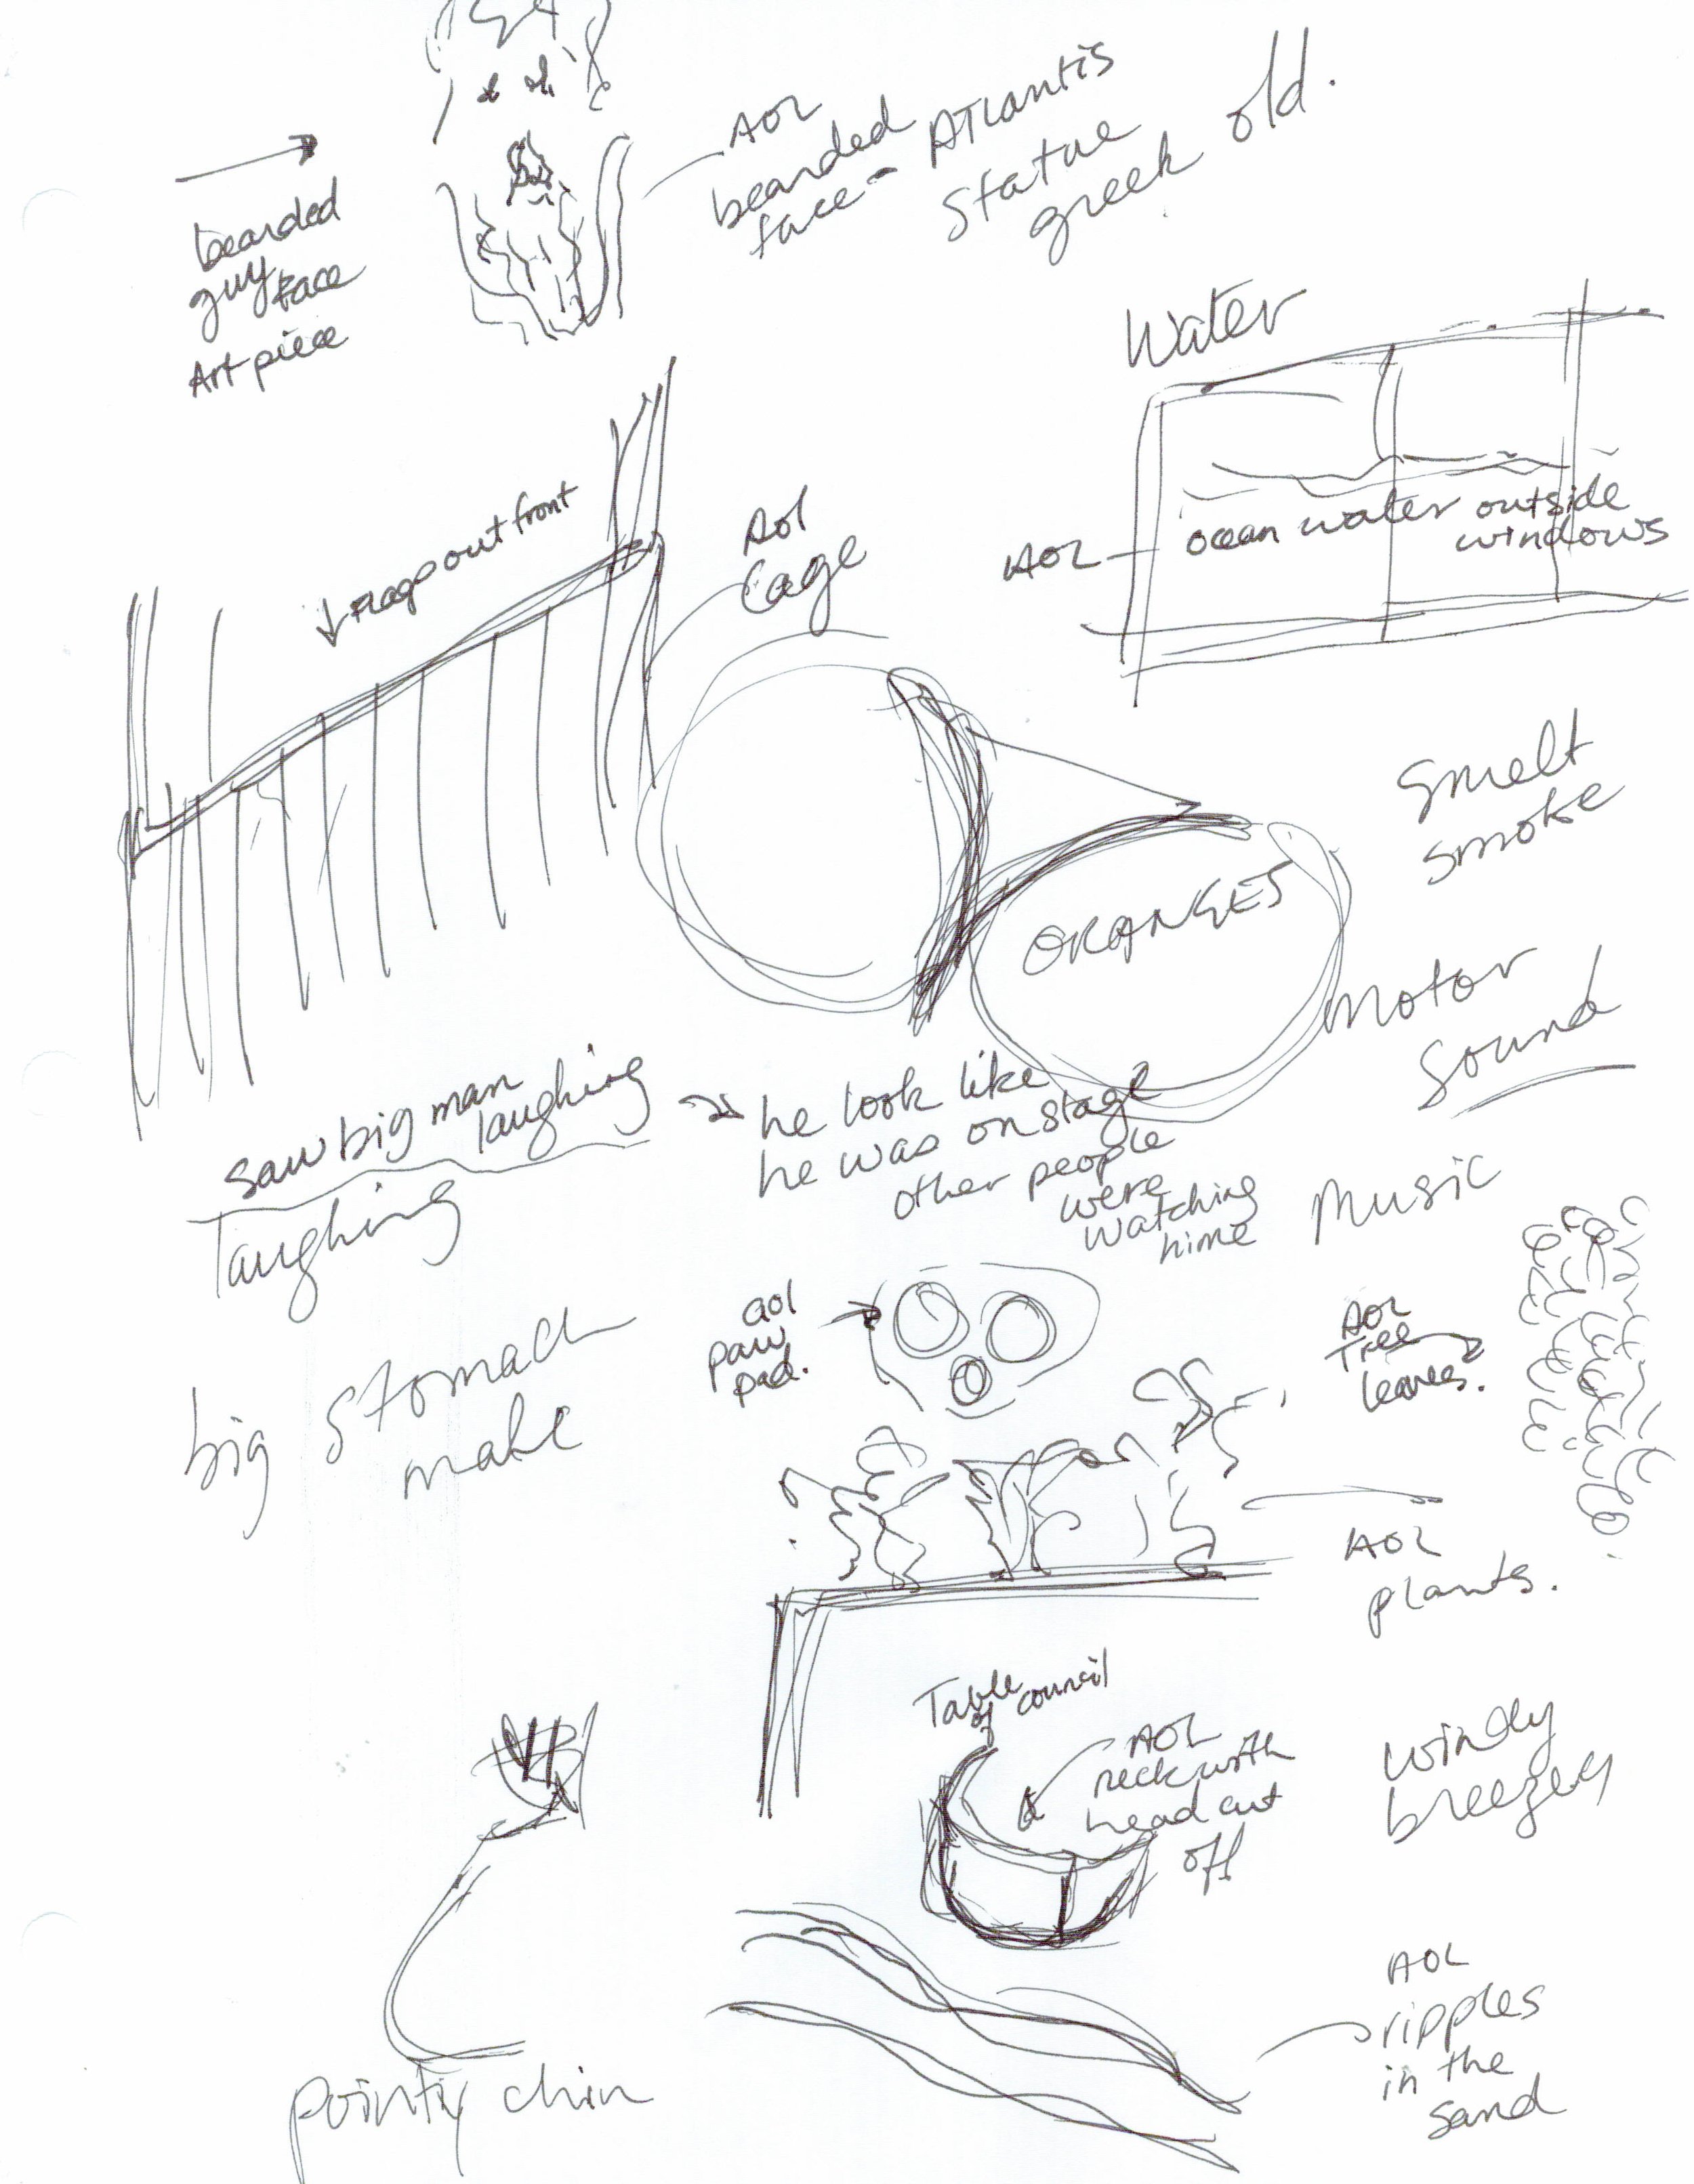 AOL
bearded
face - Atlantis
Statue
greek old.
bearded
guy face
Art piece
Water
AOL
ocean water outside
windows
out front
AOL
Cage
Smelt
smoke
ORANGES
Motor
Sound
saw big man
laughing
laughing
he look like
he was on stage
other people
were
watching
hime
Music
big stomach
male
aol
paw
pad.
AOL
Tree
leaves.
AOL
plants.
Table
of council
AOL
neck with
head cut
off
windy
breezey
AOL
ripples
in the
sand
pointy chin